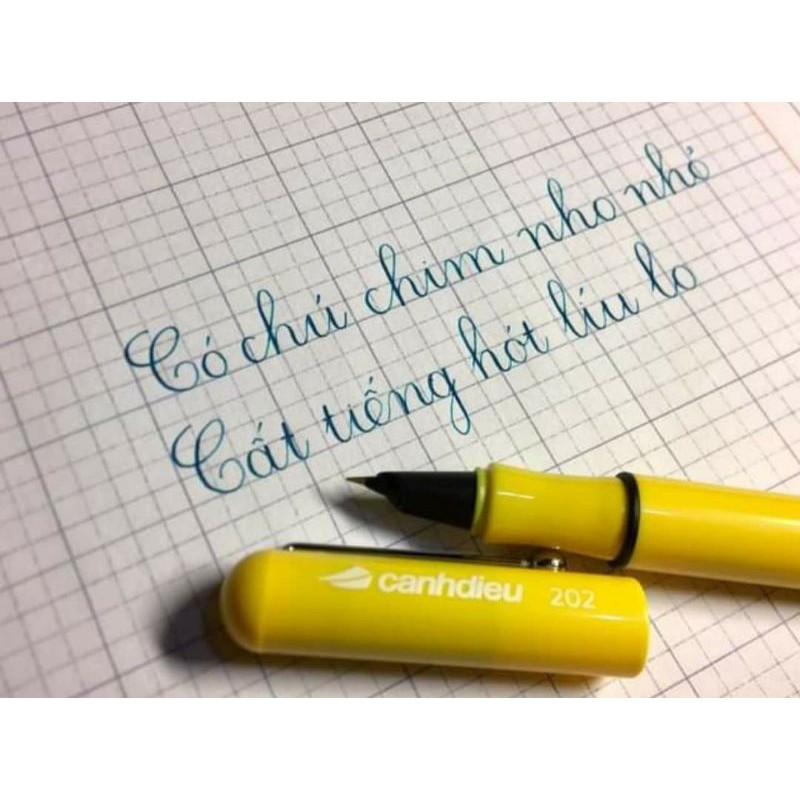 Có chú chim nho nhỏ
Cất tiếng hót líu lo
canhdieu 202